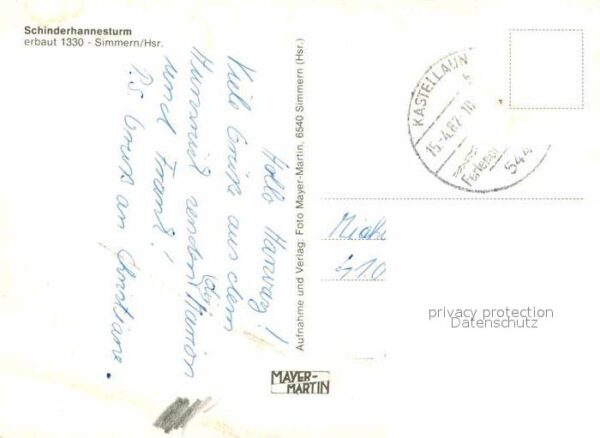 Schinderhannesturm
erbaut 1330 - Simmern/Hsr.
Hallo
Viele Grüße aus dem
Hunsrück senden Dir Marion
und Frank!
P.S. Gruß an Christiane.
Aufnahme und Verlag: Foto Mayer-Martin, 6540 Simmern (Hsr.)
MAYER-
MARTIN
KASTELLAUN
15.-4.87-18
Ferienor
544
Mich
410
privacy protection
Datenschutz